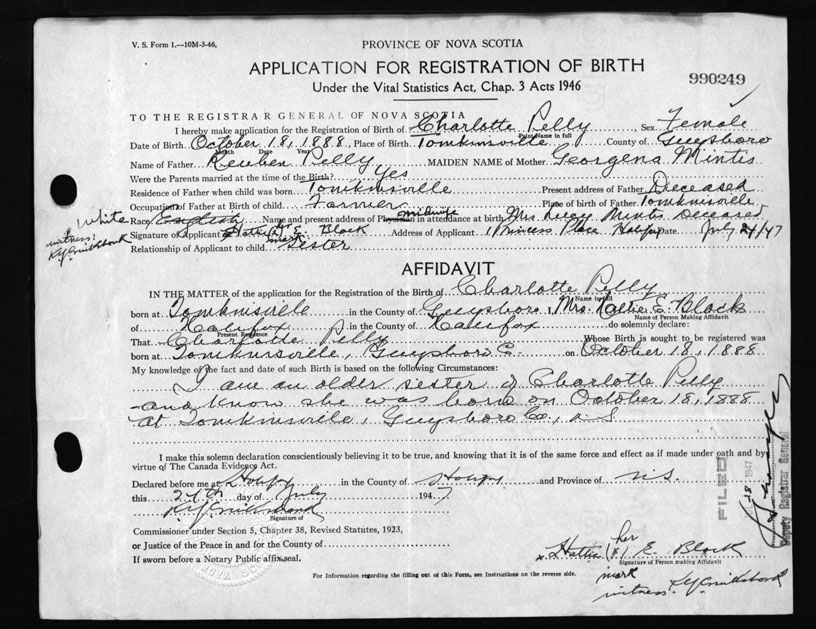 V. S. Form 1.---10M-3-46,
PROVINCE OF NOVA SCOTIA
APPLICATION FOR REGISTRATION OF BIRTH
990249
Under the Vital Statistics Act, Chap. 3 Acts 1946
TO THE REGISTRAR GENERAL OF NOVA SCOTIA
I hereby make application for the Registration of Birth of Charlotte Pelly Sex Female
Print Name in full
Date of Birth October 18, 1888, Place of Birth Tomkinsville County of Guysboro
Month Date Year
Name of Father Reuben Pelly MAIDEN NAME of Mother Georgena Mintis
Were the Parents married at the time of the Birth? Yes
Residence of Father when child was born Tomkinsville Present address of Father Deceased
Occupation of Father at Birth of child Farmer Place of birth of Father Tomkinsville
White Race English Name and present address of Physician midwife in attendance at birth Mrs. Mintis Deceased
witness:
Signature of Applicant Hattie her (x) mark E. Block Address of Applicant 1 Princess Place Halifax Date July 24/47
Relationship of Applicant to child Sister
AFFIDAVIT
IN THE MATTER of the application for the Registration of the Birth of Charlotte Pelly
Name in full
born at Tomkinsville in the County of Guysboro I, Mrs. Hattie E. Block
Name of Person Making Affidavit
of Halifax in the County of Halifax do solemnly declare:
Present Residence
That Charlotte Pelly Whose Birth is sought to be registered was
born at Tomkinsville, Guysboro Co. on October 18, 1888
My knowledge of the fact and date of such Birth is based on the following Circumstances:
I am an older sister of Charlotte Pelly
and know she was born on October 18, 1888
at Tomkinsville, Guysboro Co., N S
I make this solemn declaration conscientiously believing it to be true, and knowing that it is of the same force and effect as if made under oath and by
virtue of The Canada Evidence Act.
Declared before me at Halifax in the County of Halifax and Province of N.S.
this 24th day of July 1947
Signature of
Commissioner under Section 5, Chapter 38, Revised Statutes, 1923,
or Justice of the Peace in and for the County of
If sworn before a Notary Public affix seal.
x Hattie her (x) mark E. Block
Signature of Person making Affidavit
witness:
For Information regarding the filling out of this Form, see Instructions on the reverse side.
FILED
18 1947
Deputy Registrar General
NOVA SCOTIA